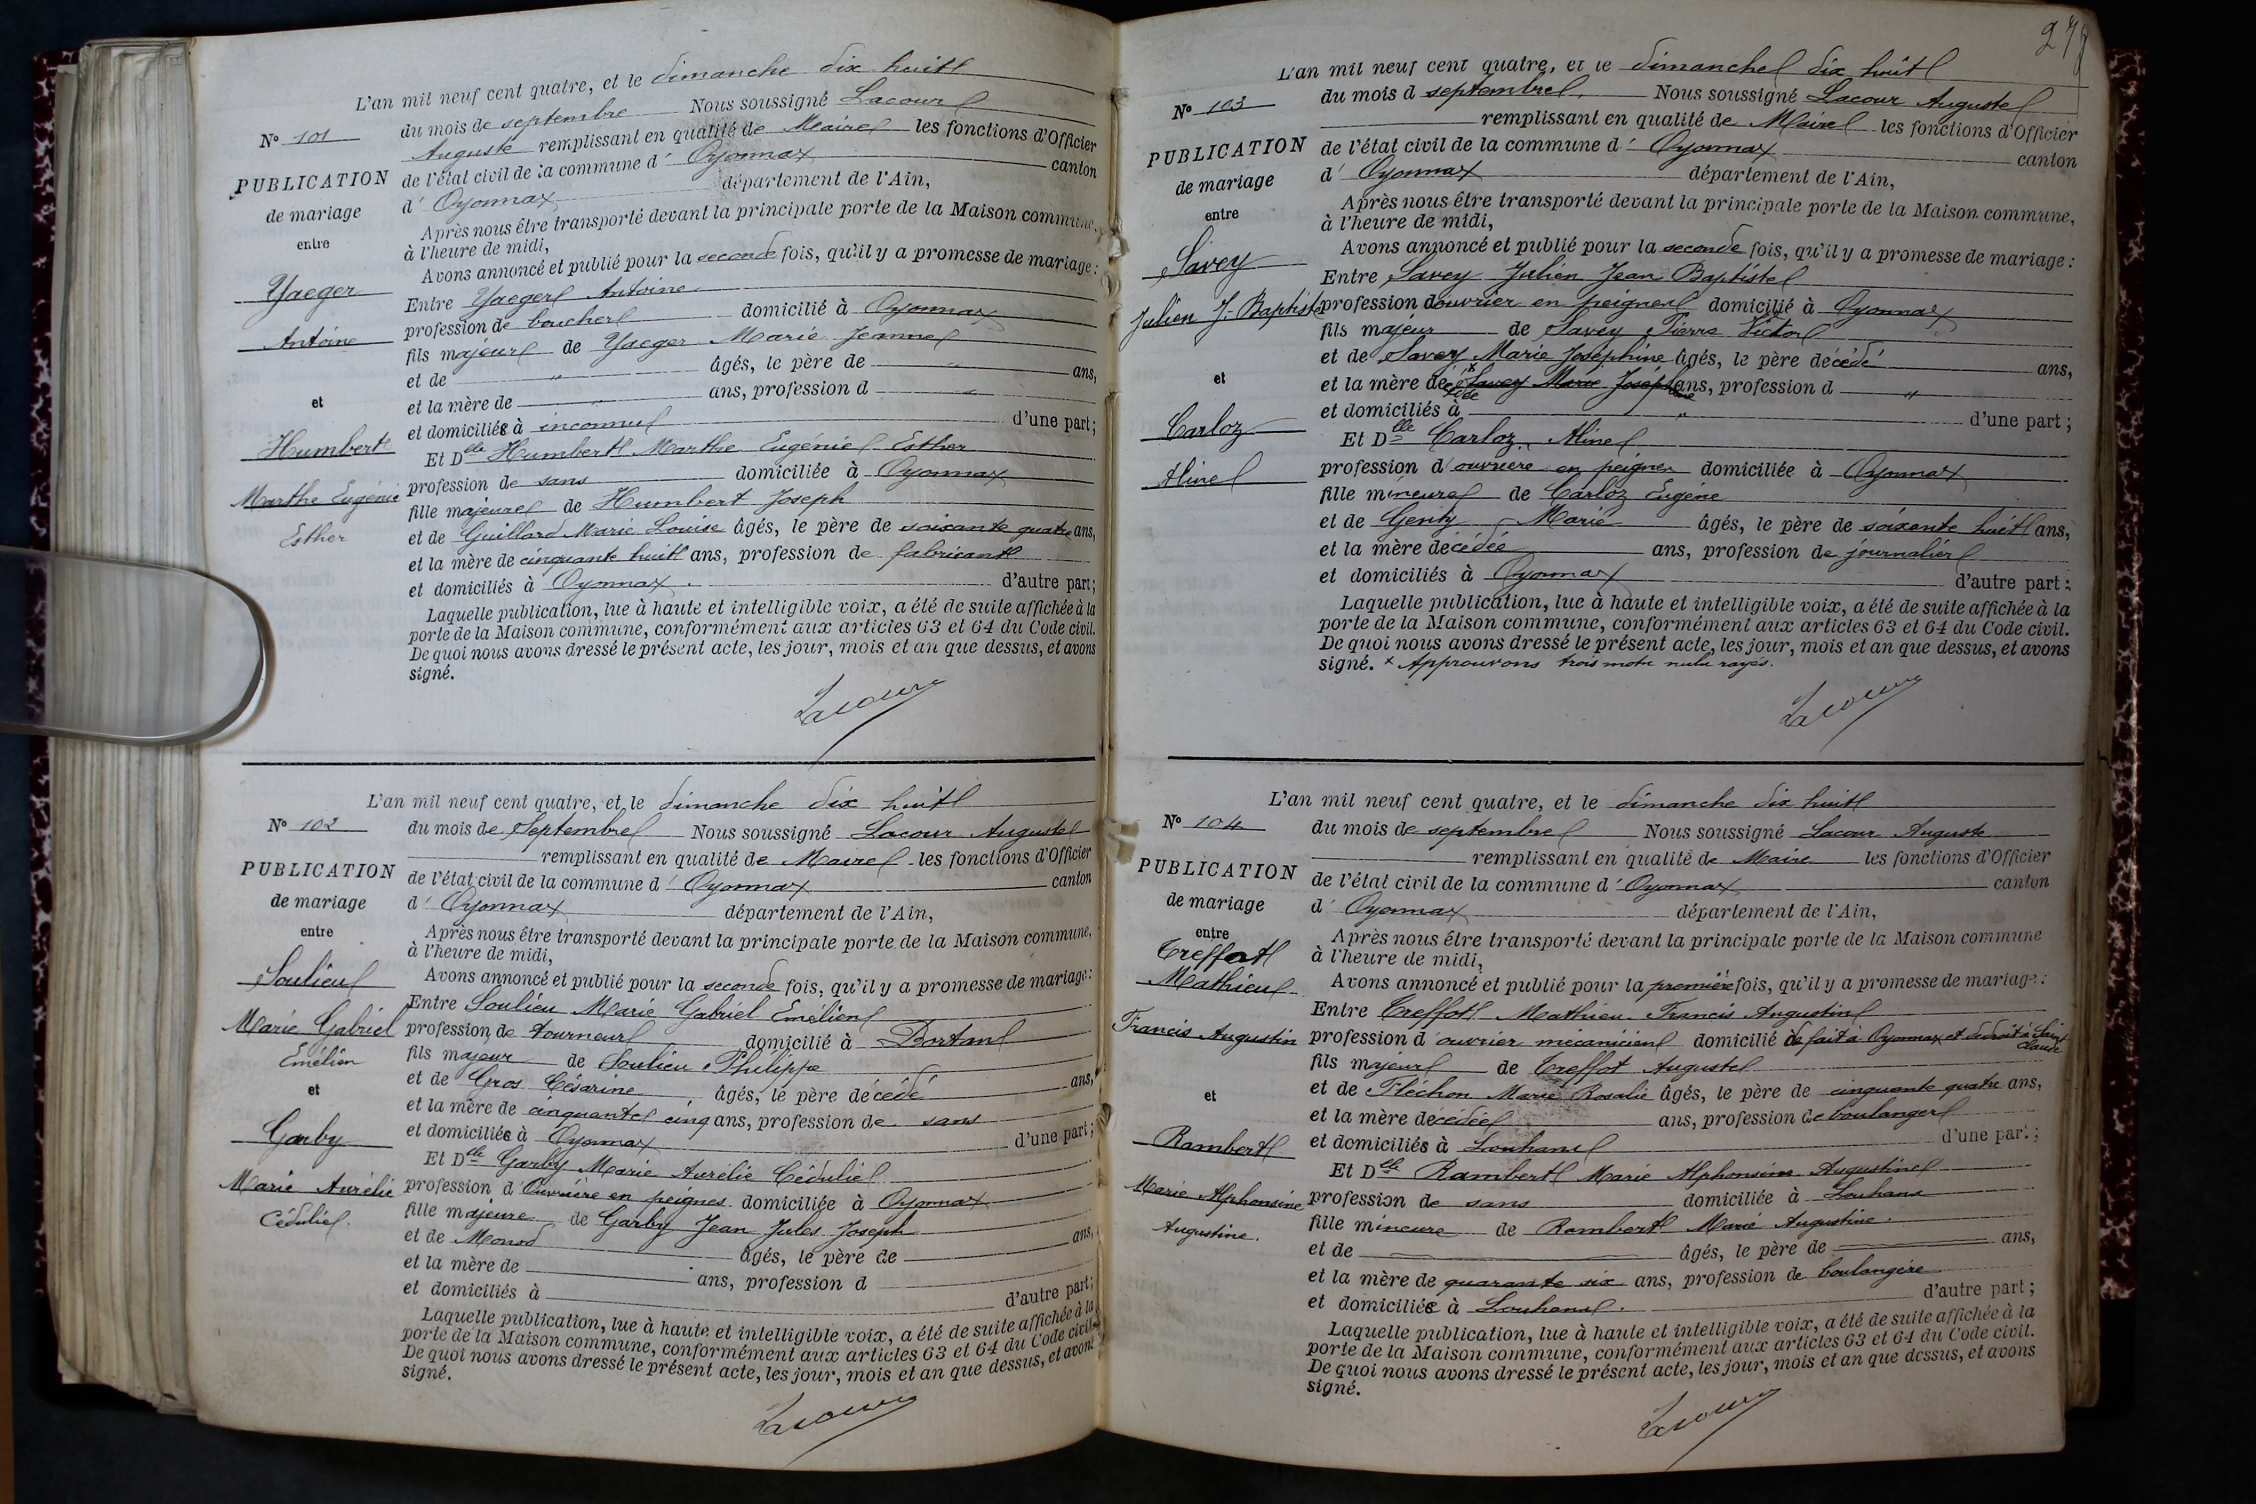 L'an mil neuf cent quatre, et le dimanche dix huit
N° 101
du mois de septembre Nous soussigné Lacour
Auguste remplissant en qualité de Maire les fonctions d'Officier
PUBLICATION
de l'état civil de la commune d' Oyonnax canton
d' Oyonnax département de l'Ain,
de mariage
Après nous être transporté devant la principale porte de la Maison commune,
entre
à l'heure de midi,
Avons annoncé et publié pour la seconde fois, qu'il y a promesse de mariage :
Yaeger
Entre Yaeger Antoine
profession de boucher domicilié à Oyonnax
Antoine
fils majeur de Yaeger Marie Jeanne
et de " âgés, le père de " ans,
et
et la mère de " ans, profession d "
et domiciliés à inconnu d'une part ;
Humbert
Et Dlle Humbert Marthe Eugénie Esther
Marthe Eugénie
profession de sans domiciliée à Oyonnax
fille majeure de Humbert Joseph
Esther
et de Guillard Marie Louise âgés, le père de soixante quatre ans,
et la mère de cinquante huit ans, profession de fabricant
et domiciliés à Oyonnax. d'autre part ;
Laquelle publication, lue à haute et intelligible voix, a été de suite affichée à la
porte de la Maison commune, conformément aux articles 63 et 64 du Code civil.
De quoi nous avons dressé le présent acte, les jour, mois et an que dessus, et avons
signé.
Lacour
L'an mil neuf cent quatre, et le dimanche dix huit
N° 102
du mois de Septembre Nous soussigné Lacour Auguste
remplissant en qualité de Maire les fonctions d'Officier
PUBLICATION
de l'état civil de la commune d' Oyonnax canton
de mariage
d' Oyonnax département de l'Ain,
entre
Après nous être transporté devant la principale porte de la Maison commune,
à l'heure de midi,
Soulieu
Avons annoncé et publié pour la seconde fois, qu'il y a promesse de mariage :
Entre Soulieu Marie Gabriel Emélien
Marie Gabriel
profession de tourneur domicilié à Dortan
Emélien
fils majeur de Soulieu Philippe
et
et de Gros Césarine âgés, le père décédé ans,
et la mère de cinquante cinq ans, profession de sans
Garby
et domiciliés à Oyonnax d'une part ;
Et Dlle Garby Marie Aurélie Cédulie
Marie Aurélie
profession d' Ouvrière en peignes domiciliée à Oyonnax
Cédulie.
fille majeure de Garby Jean Jules Joseph
et de Monod âgés, le père de ans,
et la mère de ans, profession d
et domiciliés à d'autre part ;
Laquelle publication, lue à haute et intelligible voix, a été de suite affichée à la
porte de la Maison commune, conformément aux articles 63 et 64 du Code civil.
De quoi nous avons dressé le présent acte, les jour, mois et an que dessus, et avons
signé.
Lacour
L'an mil neuf cent quatre, et le dimanche dix huit
N° 103
du mois d septembre, Nous soussigné Lacour Auguste
remplissant en qualité de Maire les fonctions d'Officier
PUBLICATION
de l'état civil de la commune d' Oyonnax canton
de mariage
d' Oyonnax département de l'Ain,
entre
Après nous être transporté devant la principale porte de la Maison commune,
à l'heure de midi,
Savey
Avons annoncé et publié pour la seconde fois, qu'il y a promesse de mariage :
Entre Savey Julien Jean Baptiste
Julien J-Baptiste
profession d ouvrier en peignes domicilié à Oyonnax
fils majeur de Savey Pierre Victor
et de Savey Marie Joséphine âgés, le père décédé ans,
et
et la mère décédée x Savey Marie Joséphine ans, profession d "
et domiciliés à " d'une part ;
Carloz
Et Dlle Carloz Aline
Aline
profession d'ouvrière en peignes domiciliée à Oyonnax
fille mineure de Carloz Eugène
et de Genty Marie âgés, le père de soixente huit ans,
et la mère décédée ans, profession de journalier
et domiciliés à Oyonnax d'autre part ;
Laquelle publication, lue à haute et intelligible voix, a été de suite affichée à la
porte de la Maison commune, conformément aux articles 63 et 64 du Code civil.
De quoi nous avons dressé le présent acte, les jour, mois et an que dessus, et avons
signé. x Approuvons trois mots nuls rayés.
Lacour
L'an mil neuf cent quatre, et le dimanche dix huit
N° 104
du mois de septembre Nous soussigné Lacour Auguste
remplissant en qualité de Maire les fonctions d'Officier
PUBLICATION
de l'état civil de la commune d' Oyonnax canton
de mariage
d' Oyonnax département de l'Ain,
entre
Après nous être transporté devant la principale porte de la Maison commune
Treffot
à l'heure de midi,
Mathieu
Avons annoncé et publié pour la première fois, qu'il y a promesse de mariage :
Entre Treffot Mathieu Francis Augustin
Francis Augustin
profession d'ouvrier mécanicien domicilié de fait à Oyonnax et de droit à Saint Claude
fils majeur de Treffot Auguste
et
et de Fléchon Marie Rosalie âgés, le père de cinquante quatre ans,
et la mère décédée ans, profession de boulanger
Rambert
et domiciliés à Louhans d'une part ;
Et Dlle Rambert Marie Alphonsine Augustine
Marie Alphonsine
profession de sans domiciliée à Louhans
Augustine.
fille mineure de Rambert Marie Augustine.
et de âgés, le père de ans,
et la mère de quarante six ans, profession de boulangère
et domiciliés à Louhans. d'autre part ;
Laquelle publication, lue à haute et intelligible voix, a été de suite affichée à la
porte de la Maison commune, conformément aux articles 63 et 64 du Code civil.
De quoi nous avons dressé le présent acte, les jour, mois et an que dessus, et avons
signé.
Lacour